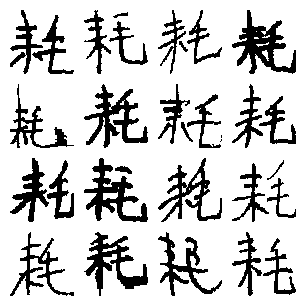 耗耗耗耗
耗耗耗耗
耗耗耗耗
耗耗耗耗